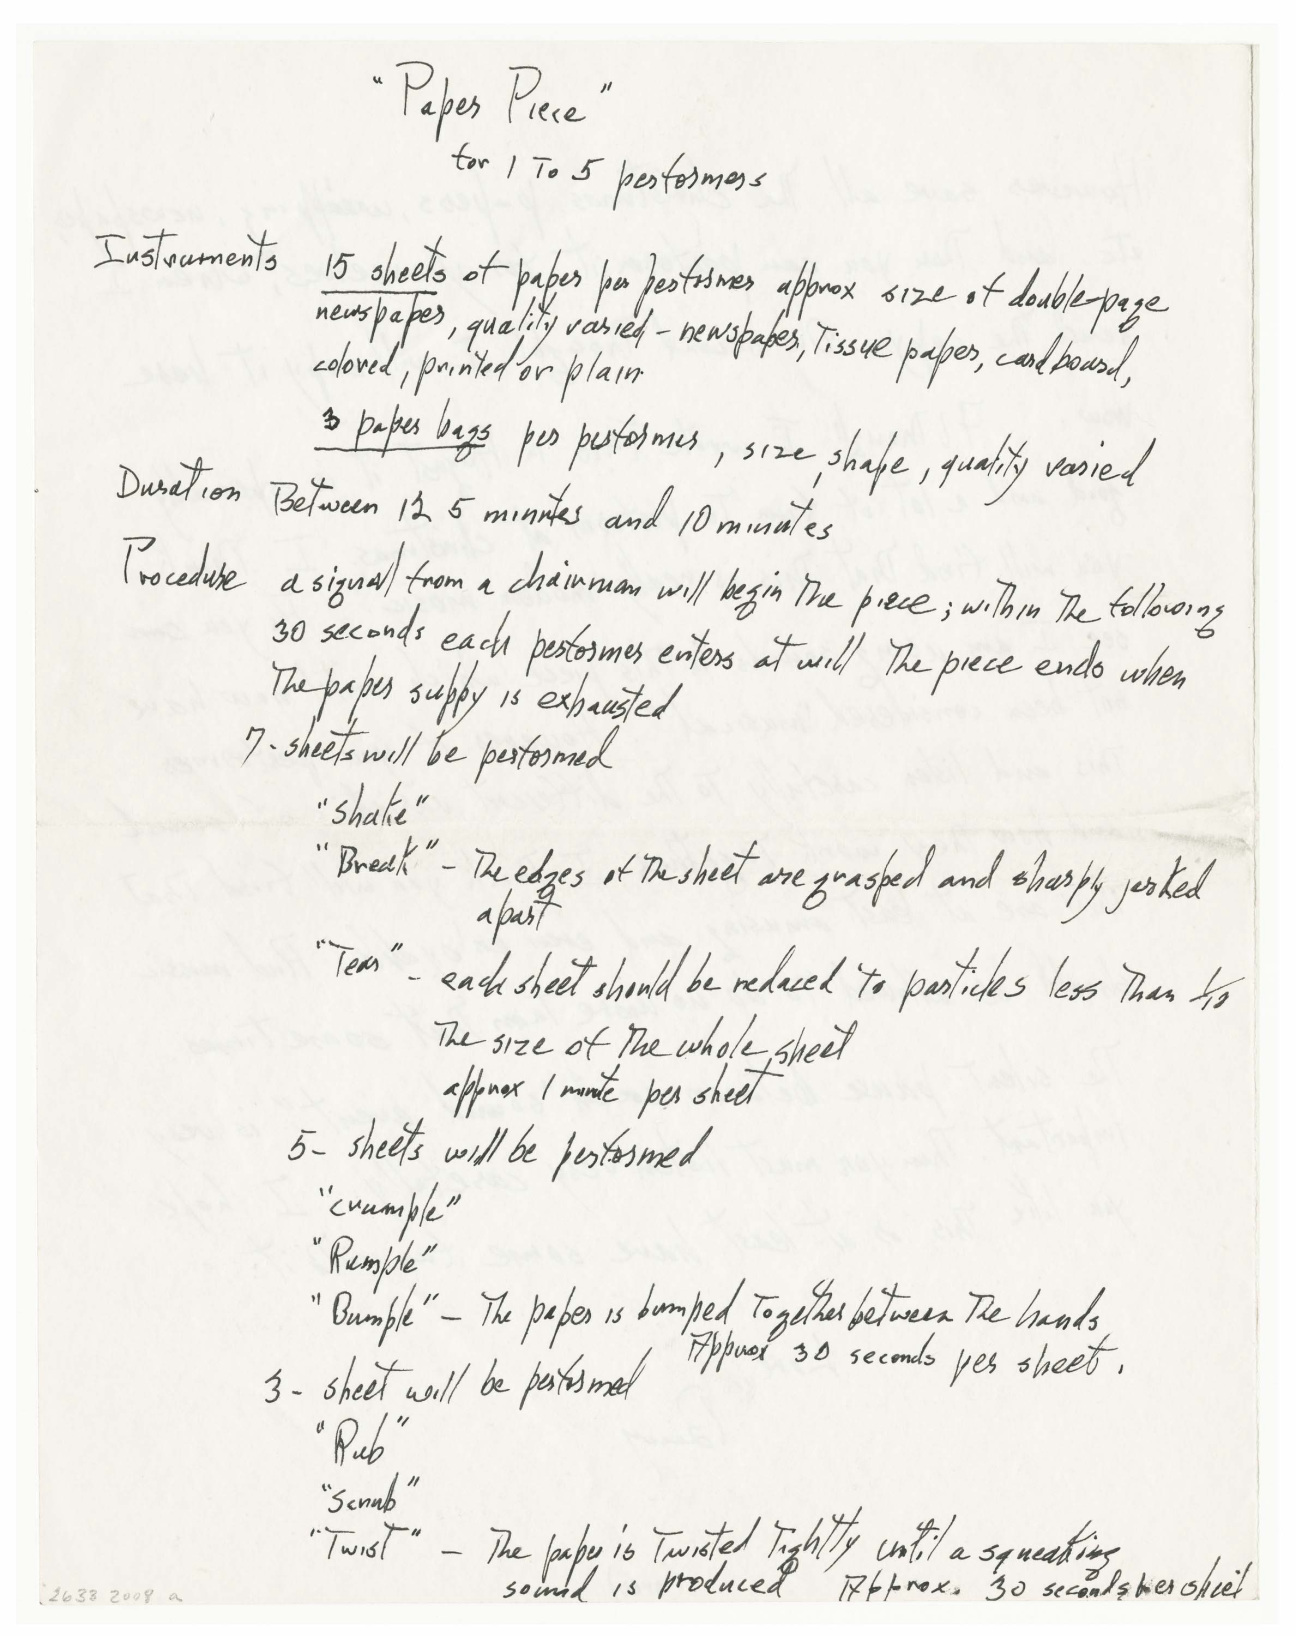 "Paper Piece"
for 1 To 5 performers
Instruments 15 sheets of paper per performer approx size of double-page
newspaper, quality varied - newspaper, Tissue paper, cardboard,
colored, printed or plain
3 paper bags per performer, size, shape, quality varied
Duration Between 12 5 minutes and 10 minutes
Procedure a signal from a chairman will begin The piece; within The following
30 seconds each performer enters at will The piece ends when
The paper supply is exhausted
7 - sheets will be performed
"Shake"
"Break" - The edges of The sheet are grasped and sharply jerked
apart
"Tear" - each sheet should be reduced To particles less Than 1/10
The size of The whole sheet
approx 1 minute per sheet
5 - sheets will be performed
"crumple"
"Rumple"
"Bumple" - The paper is bumped Together between The hands
Approx 30 seconds per sheet.
3 - sheet will be performed
"Rub"
"Scrub"
"Twist" - The paper is Twisted Tightly until a squeaking
sound is produced Approx. 30 seconds per sheet
2633 2008 a